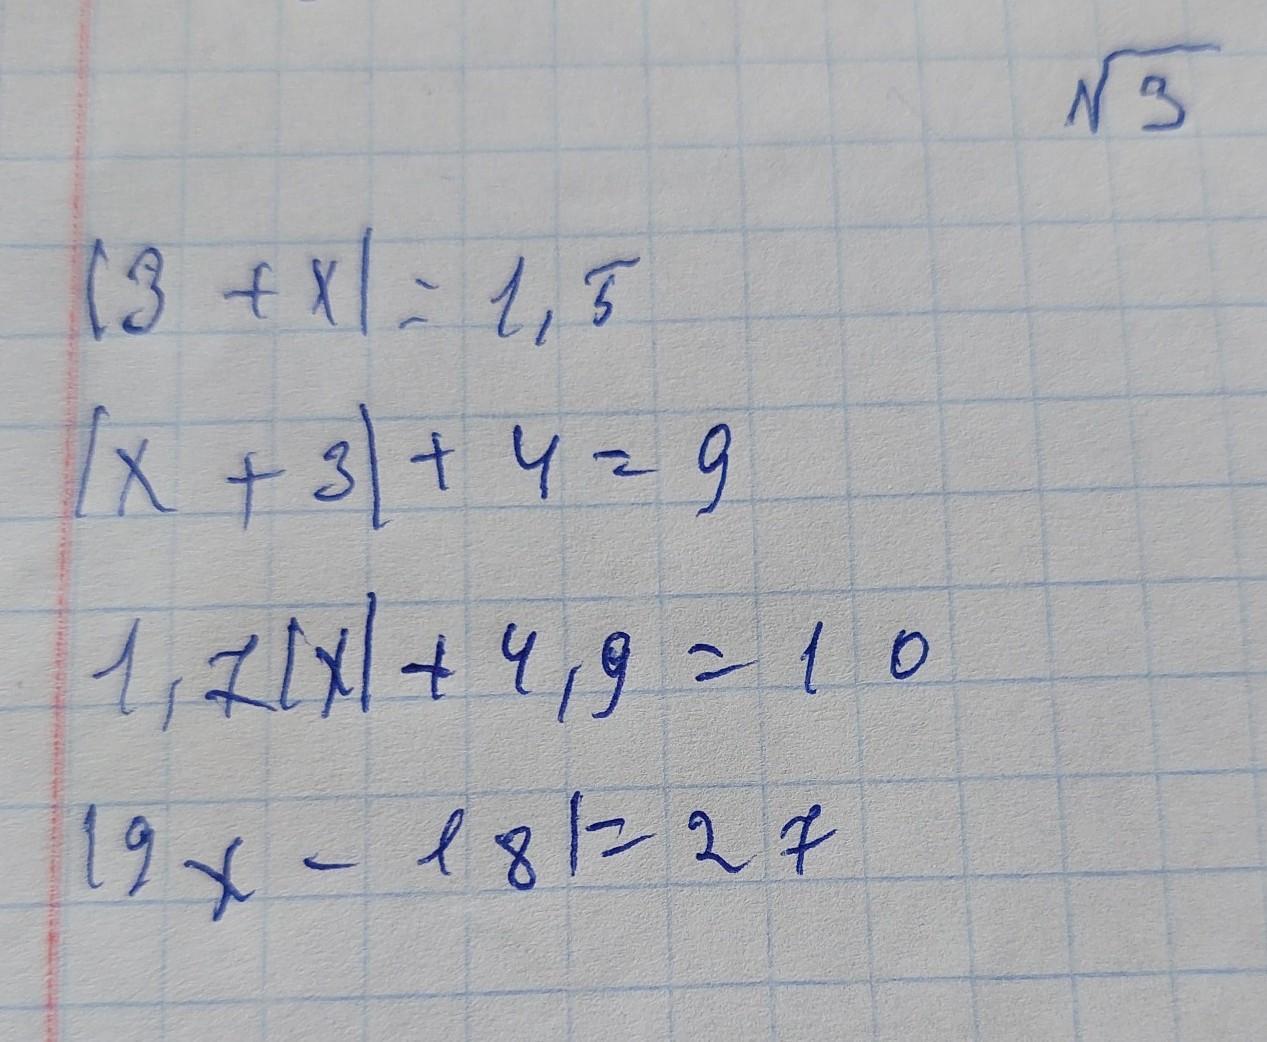 √3
|3 + x| = 1,5
|x + 3| + 4 = 9
1,7|x| + 4,9 = 10
|9x - 18| = 27